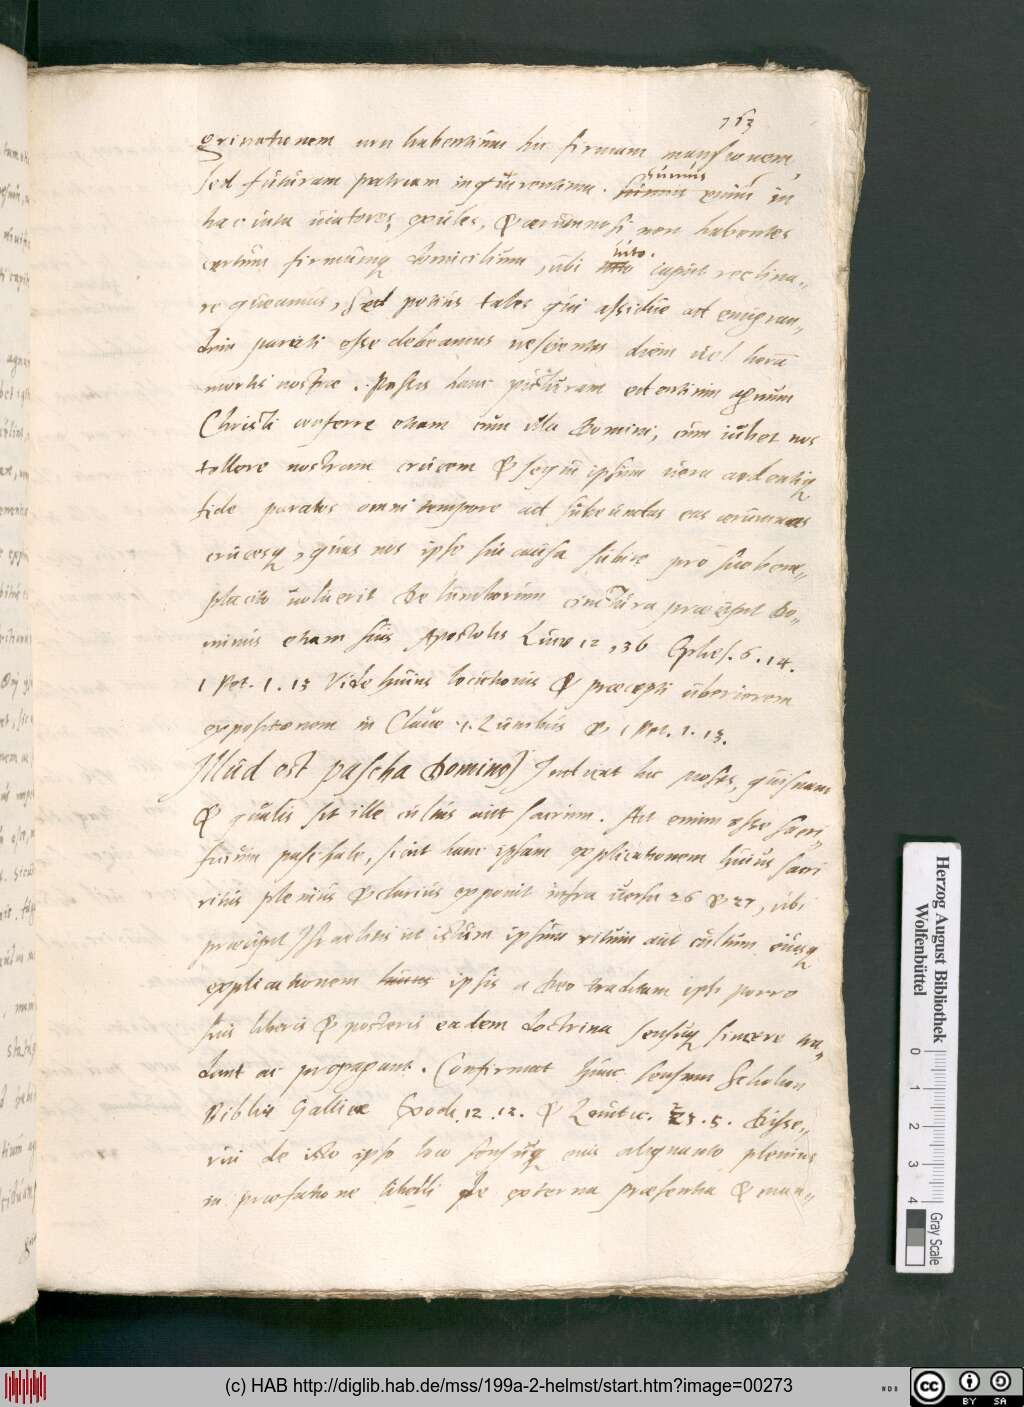 763
grinationem non habentium hic firmam mansionem,
sed futuram patriam inquirentium. sumus enim in
hac vita viatores, exules, & aerumnosi non habentes
certum firmumq domicilium, ubi tuto caput reclina„
re queamus, Sed potius tales qui assidue ad emigran„
dum parati esse debeamus nescientes diem vel horā
mortis nostrae. Possis hanc picturam edentium agnum
Christi conferre etiam cum illa Domini, cum iubet nos
tollere nostram crucem & sequi ipsum vera ardentiq
fide paratos omni tempore ad subeundas eas aerumnas
crucesq, quas nos ipse sui causa subire pro suo bene„
placito voluerit De lumborum cinctura praecipit Do„
minus etiam suis Apostolis Luce 12, 36 Ephes. 6. 14.
1 Pet. 1. 13 Vide huius locutionis & praecepti uberiorem
expositionem in Clave Lumbus & 1 Pet. 1. 13.
Illud est pascha Domino] Indicat hic Moses, quisnam
& qualis sit ille cultus aut sacrum. Ait enim esse sacri„
ficium paschale, sicut hanc ipsam explicationem huius sacri
ritus plenius & clarius exponit infra versu 26 & 27, ubi
praecipit Israelitis ut istum ipsum ritum aut cultum eiusq
explicationem ipsis a Deo traditam ipsi porro
suis liberis & posteris eadem doctrina sensuq sincere tra„
dant ac propagant. Confirmat hunc sensum Scholion
Biblie Gallice Exod. 12. 12. & Levitic. 23. 5. Disse„
rui de isto ipso loco sensuq eius aliquanto plenius
in praefatione libelli De externa praesentia & man„
Herzog August Bibliothek
Wolfenbüttel
0 1 2 3 4
Gray Scale
(c) HAB http://diglib.hab.de/mss/199a-2-helmst/start.htm?image=00273
cc BY SA